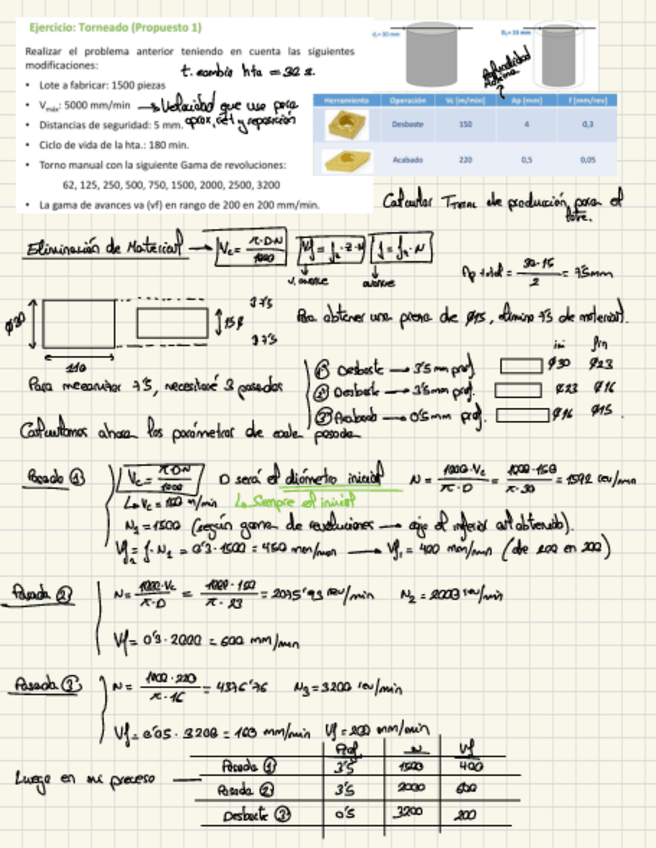 Ejercicio: Torneado (Propuesto 1)
Realizar el problema anterior teniendo en cuenta las siguientes
modificaciones:
t. cambio hta = 30 s.
• Lote a fabricar: 1500 piezas
• Vmáx: 5000 mm/min → Velocidad que uso para
aprox, ret y reposición
• Distancias de seguridad: 5 mm.
• Ciclo de vida de la hta.: 180 min.
• Torno manual con la siguiente Gama de revoluciones:
62, 125, 250, 500, 750, 1500, 2000, 2500, 3200
• La gama de avances va (vf) en rango de 200 en 200 mm/min.
Profundidad máxima ?
Herramienta Operación Vc (m/min) Ap (mm) f (mm/rev)
Desbaste 150 4 0,3
Acabado 220 0,5 0,05
Calcular de producción para el
lote.
Eliminación de Material → Vc = π·D·N / 1000
avance
Ap total = 30-15 / 2 = 7'5mm
ϕ30
15ϕ
110
Para obtener una pieza de ϕ15, elimino 7'5 de material.
Para mecanizar 7'5, necesitaré 3 pasadas
ini fin
① Desbaste → 3'5 mm prof. ϕ30 ϕ23
② Desbaste → 3'5 mm prof. ϕ23 ϕ16
③ Acabado → 0'5 mm prof. ϕ16 ϕ15
Calculamos ahora los parámetros de cada pasada
Pasada ① Vc = π·D·N / 1000 D será el diámetro inicial N = 1000·Vc / π·D = 1000·150 / π·30 = 1592 rev/min
Vc = 150 m/min Siempre el inicial
N1 = 1500 (según gama de revoluciones → cojo el inferior al obtenido).
Vf = f·N1 = 0'3·1500 = 450 mm/min → Vf1 = 400 mm/min (de 200 en 200)
Pasada ② N = 1000·Vc / π·D = 1000·150 / π·23 = 2075'93 rev/min N2 = 2000 rev/min
Vf = 0'3·2000 = 600 mm/min
Pasada ③ N = 1000·220 / π·16 = 4376'76 N3 = 3200 rev/min
Vf = 0'05·3200 = 160 mm/min Vf = 200 mm/min
Luego en mi proceso
Prof. N Vf
Pasada ① 3'5 1500 400
Pasada ② 3'5 2000 600
Desbaste ③ 0'5 3200 200